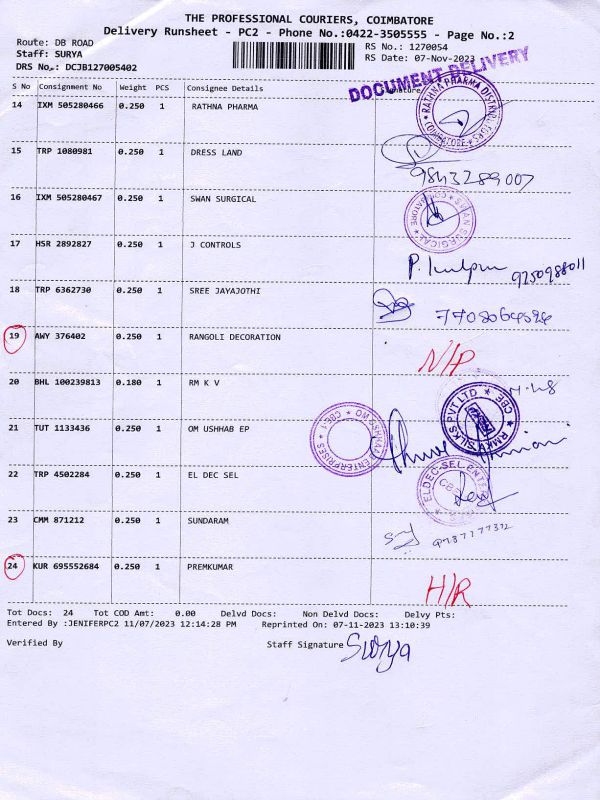 THE PROFESSIONAL COURIERS, COIMBATORE
Delivery Runsheet - PC2 - Phone No.:0422-3505555 - Page No.:2
Route: DB ROAD
Staff: SURYA
DRS No.: DCJB127005402
RS No.: 1270054
RS Date: 07-Nov-2023
DOCUMENT DELIVERY
S No Consignment No Weight PCS Consignee Details Signature
14 IXM 505280466 0.250 1 RATHNA PHARMA
15 TRP 1080981 0.250 1 DRESS LAND
9843289007
16 IXM 505280467 0.250 1 SWAN SURGICAL
17 HSR 2892827 0.250 1 J CONTROLS
9750988011
18 TRP 6362730 0.250 1 SREE JAYAJOTHI
19 AWY 376402 0.250 1 RANGOLI DECORATION
N/P
20 BHL 100239813 0.180 1 RM K V
21 TUT 1133436 0.250 1 OM USHHAB EP
22 TRP 4502284 0.250 1 EL DEC SEL
23 CMM 871212 0.250 1 SUNDARAM
24 KUR 695552684 0.250 1 PREMKUMAR
H/R
Tot Docs: 24 Tot COD Amt: 0.00 Delvd Docs: Non Delvd Docs: Delvy Pts:
Entered By :JENIFERPC2 11/07/2023 12:14:28 PM Reprinted On: 07-11-2023 13:10:39
Verified By Staff Signature Surya